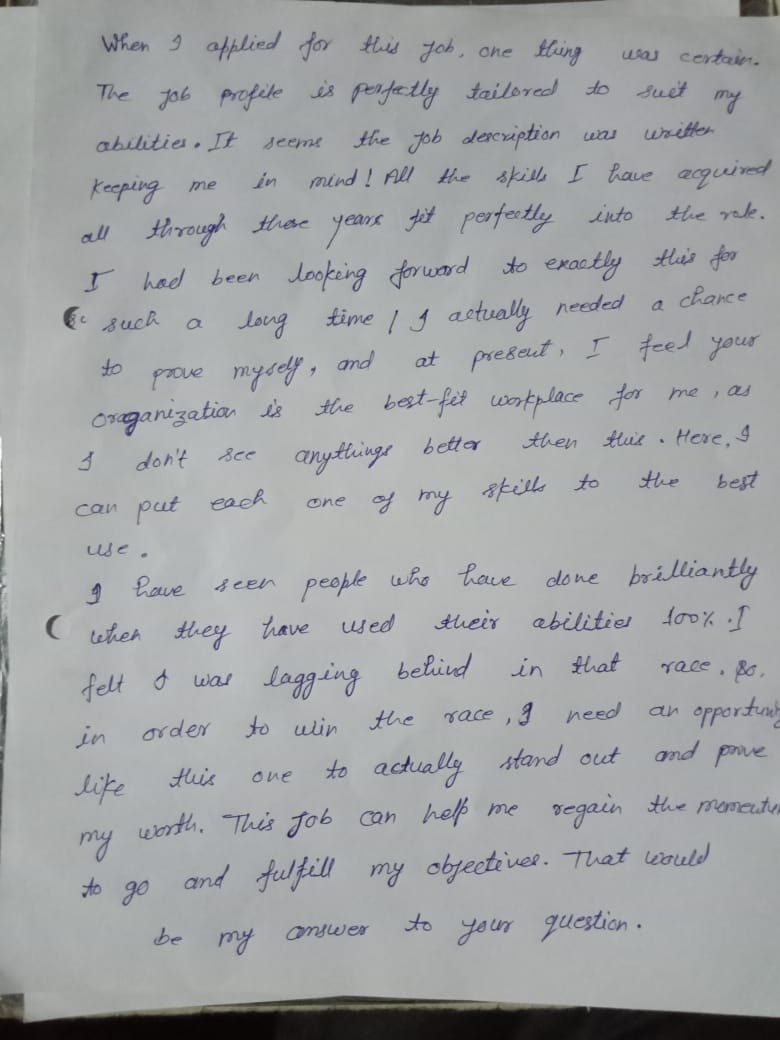 When I applied for this job, one thing was certain.
The job profile is perfectly tailored to suit my
abilities. It seems the job description was written
keeping me in mind! All the skills I have acquired
all through these years fit perfectly into the role.
I had been looking forward to exactly this for
such a long time! I actually needed a chance
to prove myself, and at present, I feel your
oraganization is the best-fit workplace for me, as
I don't see anythings better then this. Here, I
can put each one of my skills to the best
use.
I have seen people who have done brilliantly
when they have used their abilities 100%. I
felt I was lagging behind in that race. So,
in order to win the race, I need an opportunity
like this one to actually stand out and prove
my worth. This job can help me regain the momentum
to go and fulfill my objectives. That would
be my answer to your question.